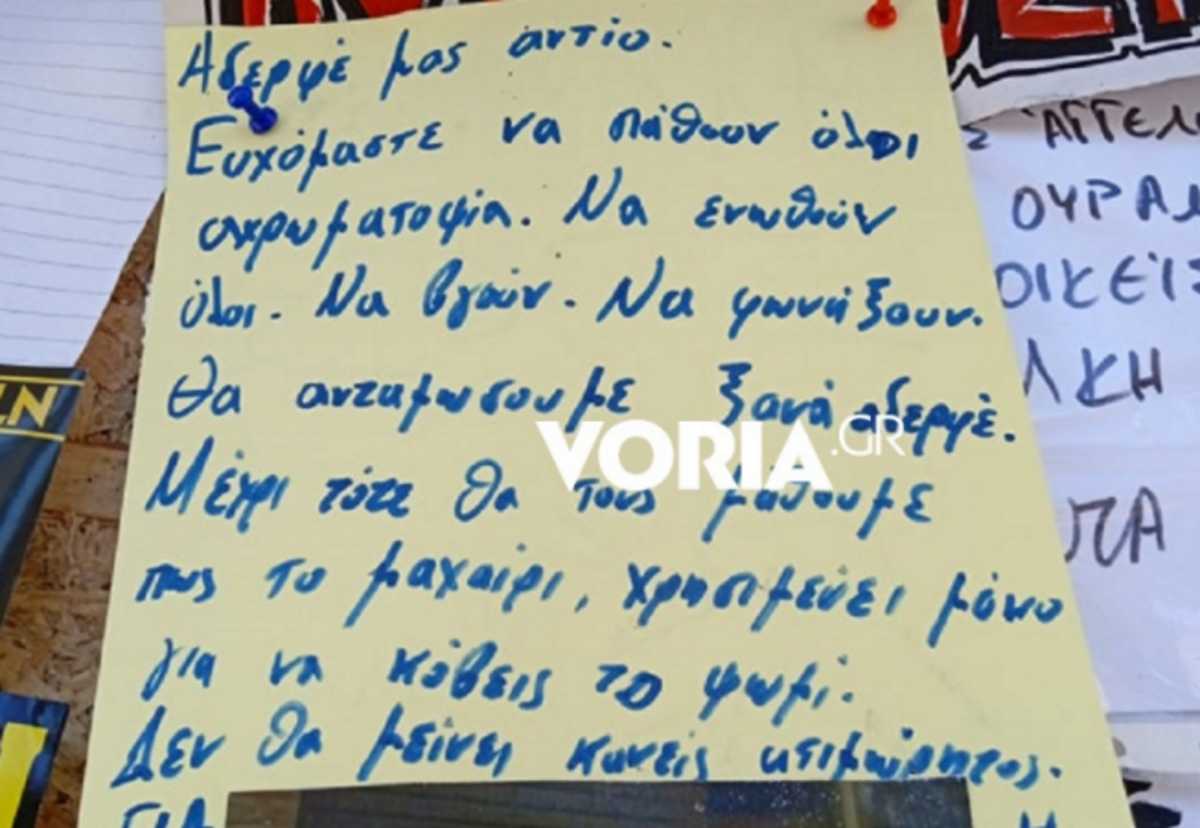 Αδερφέ μας αντίο.
Ευχόμαστε να πάθουν όλοι
αχρωματοψία. Να ενωθούν
όλοι. Να βγούν. Να φωνάξουν.
Θα ανταμωσουμε ξανά αδερφέ.
VORIA.GR
Μέχρι τότε θα τους μάθουμε
πως το μαχαίρι, χρησιμεύει μόνο
για να κόβεις το ψωμί.
Δεν θα μείνει κανείς ατιμώρητος.
ΓΙΑ
ΑΓΓΕΛ
ΟΥΡΑΝ
ΟΙΚΕΙΣ
ΛΚΗ
ΠΑ
ΣΝ